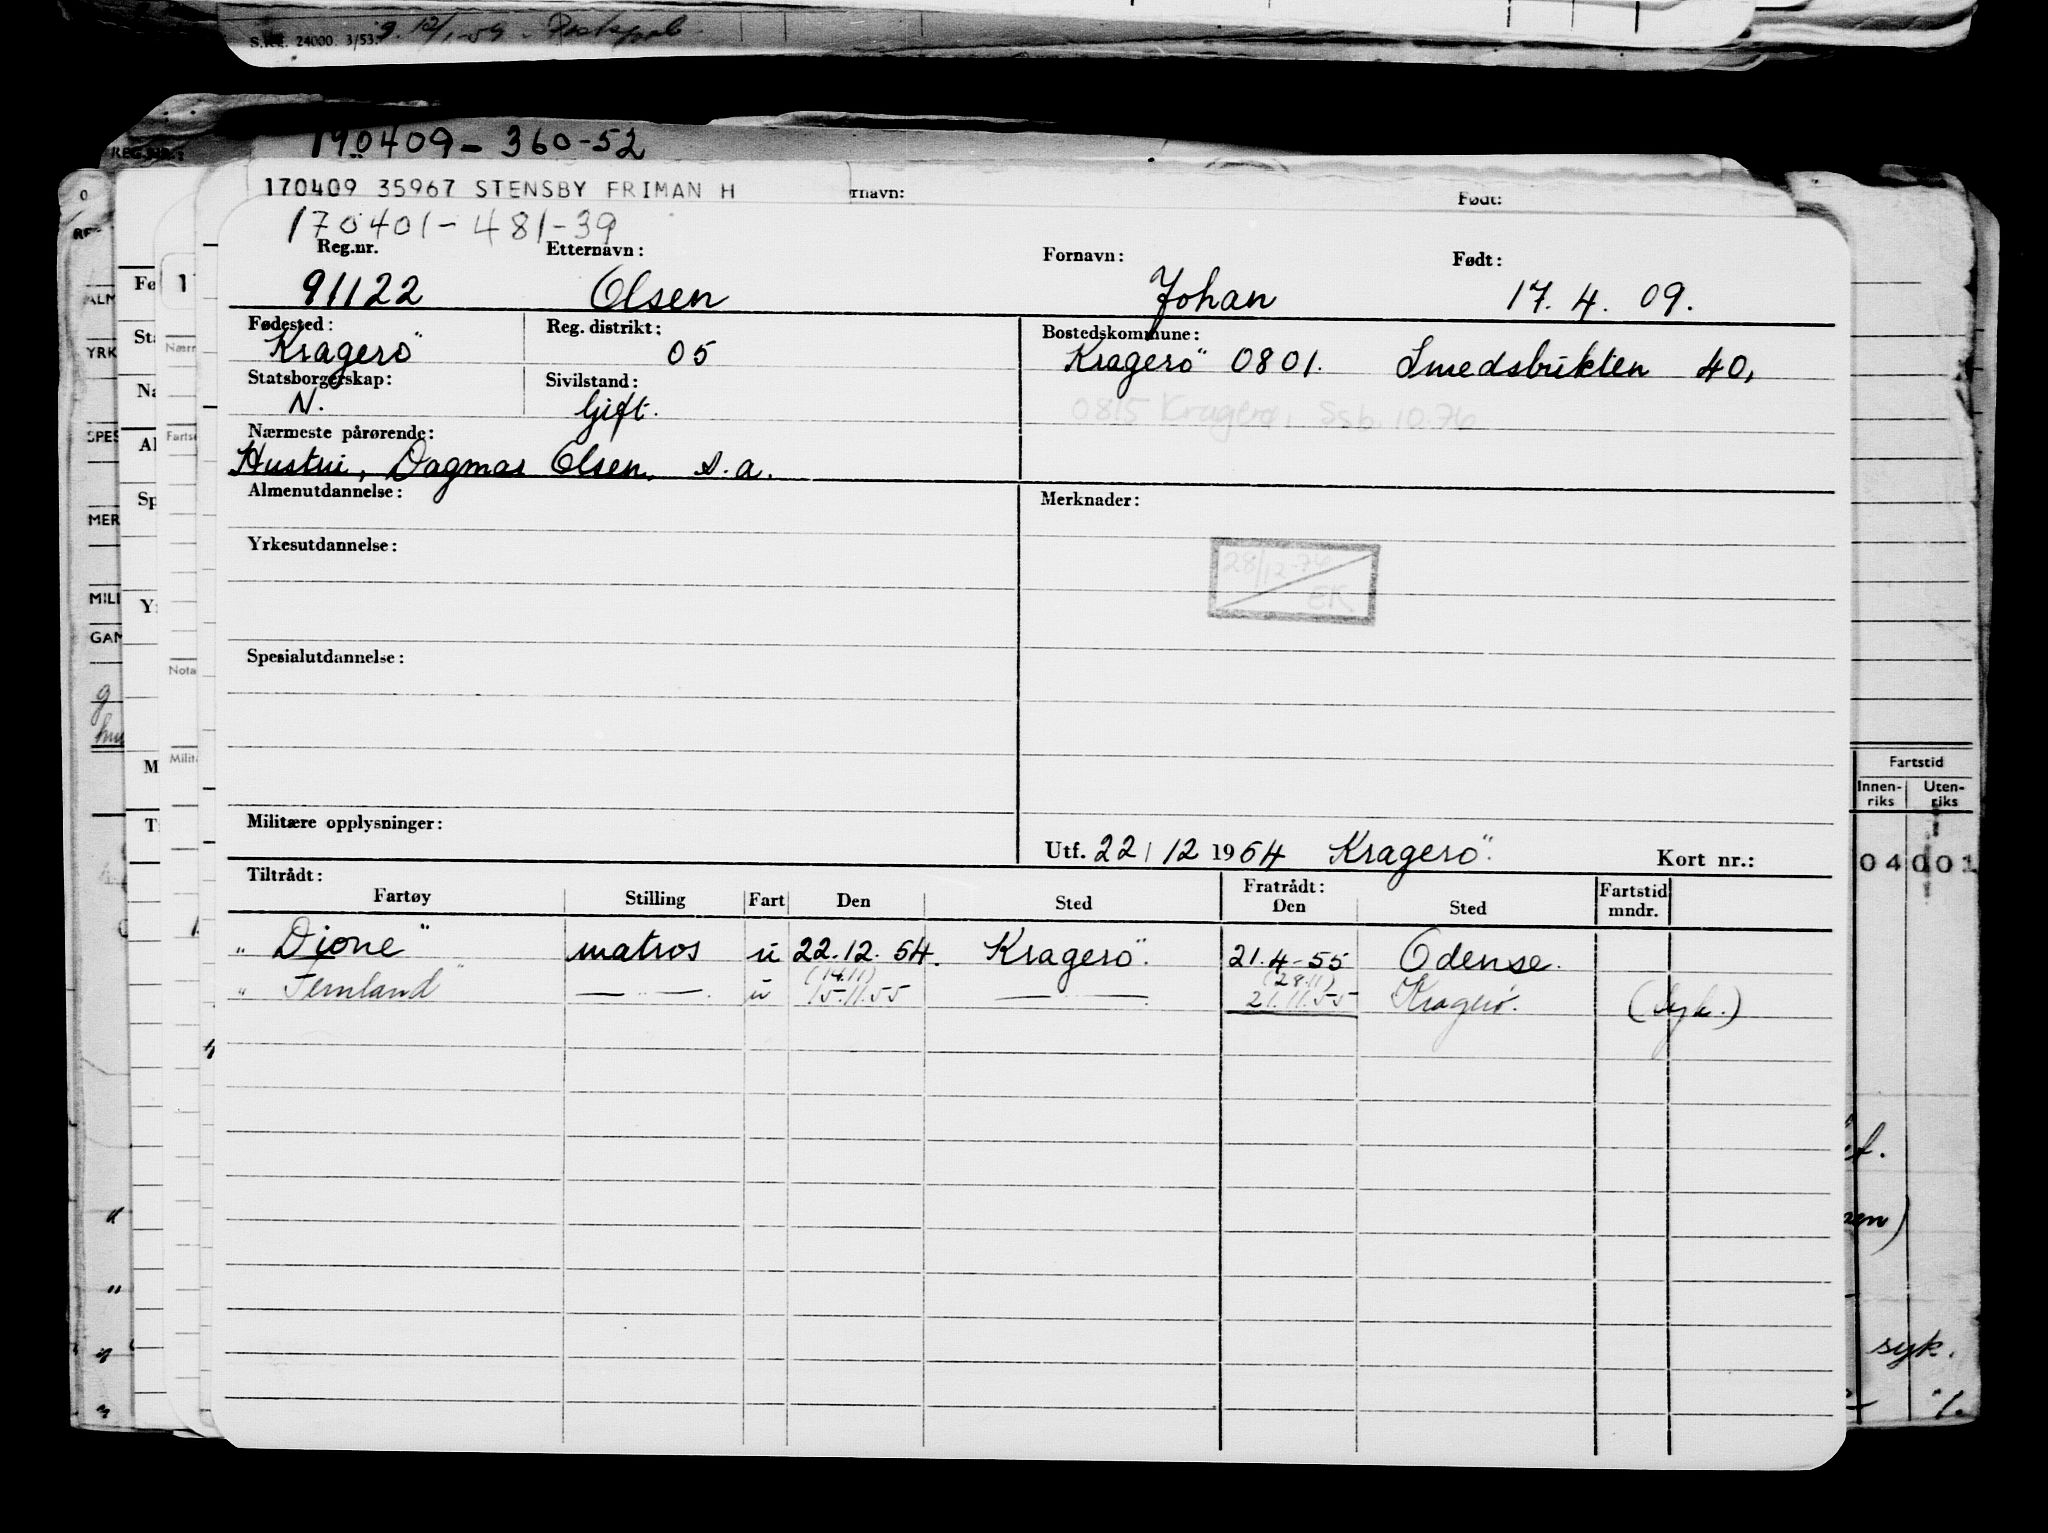 S.R.E. 24000. 3/53.
190409 - 360-52
REG.NR.
170409 35967 STENSBY FRIMAN H
rnavn: Født:
170401 - 481-39
Reg.nr. Etternavn: Fornavn: Født:
91122 Olsen Johan 17. 4. 09.
Fødested: Reg. distrikt: Bostedskommune:
Kragerö 05 Kragerö 0801. Smedsbukten 40,
Statsborgerskap: Sivilstand:
N. Gift.
0815 Kragerø, Ssb. 10.76
Nærmeste pårørende:
Hustru, Dagmar Olsen, s.a.
Almenutdannelse: Merknader:
Yrkesutdannelse:
28/12-76
EK
Spesialutdannelse:
Militære opplysninger:
Utf. 22/12 1954 Kragerö. Kort nr.:
Tiltrådt: Fratrådt:
Fartøy Stilling Fart Den Sted Den Sted Fartstid mndr.
"Dione" matros u 22.12.54. Kragerö. 21.4-55 Odense.
(14.11) (28.11)
"Fernland" — " — u 15.11.55 — " — 21.11.55 Kragerø. (syk.)
Fartstid
Innen-riks Uten-riks
04 001
syk.